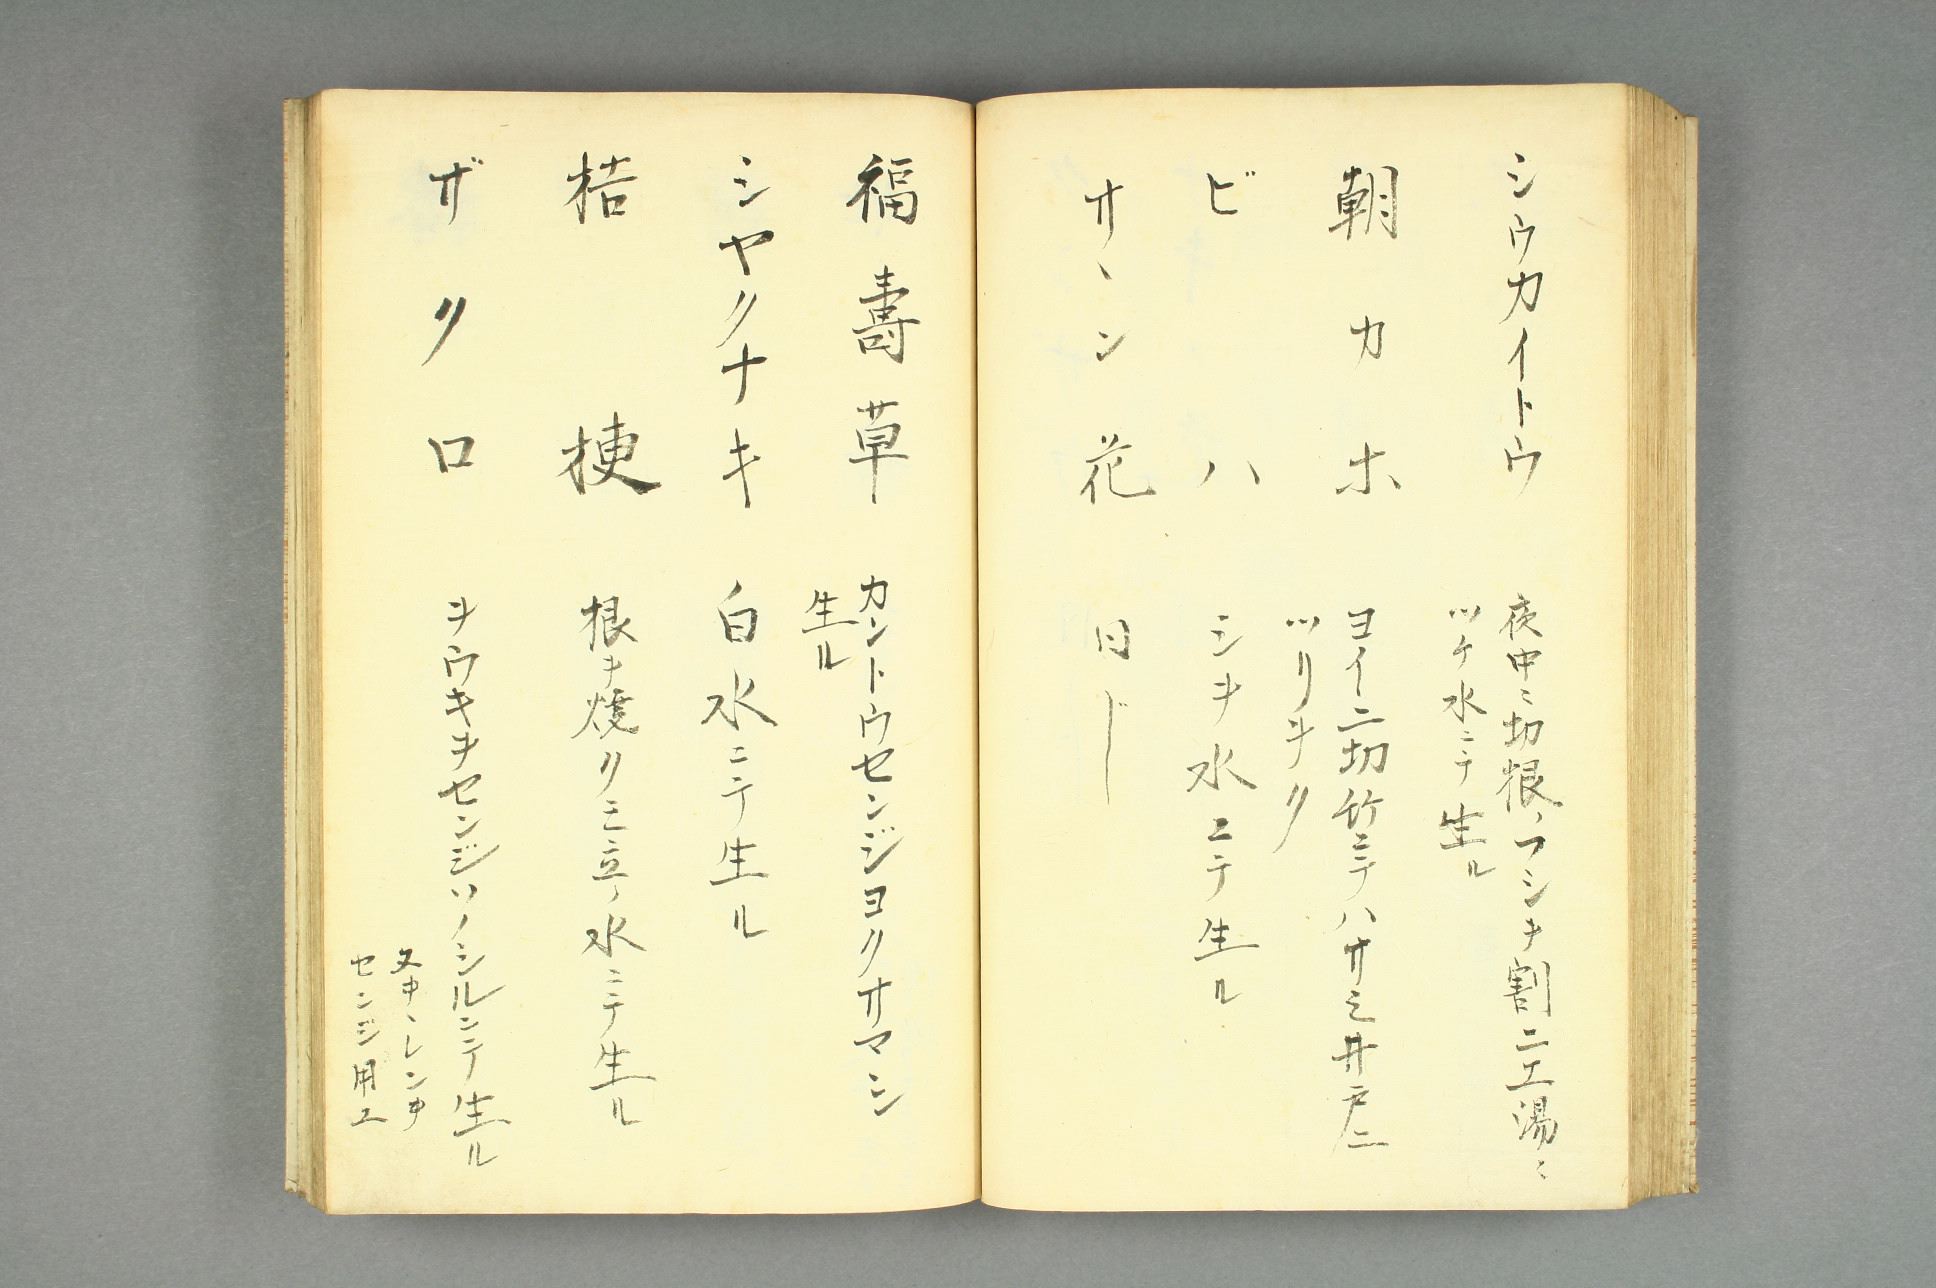 シウカイトウ
夜中ニ切根ノフシヲ割ニエ湯ニ
ツケ水ニテ生ル
朝カホ
ヨイニ切竹ニテハサミ井戸ニ
ツリヲク
ビハ
シヲ水ニテ生ル
サヽン花
同じ
福壽草
カントウセンジヨクサマシ
生ル
シヤクナキ
白水ニテ生ル
桔梗
根ヲ焼クモ立ノ水ニテ生ル
ザクロ
ヲウキヲセンジソノシルニテ生ル
センジ用エ